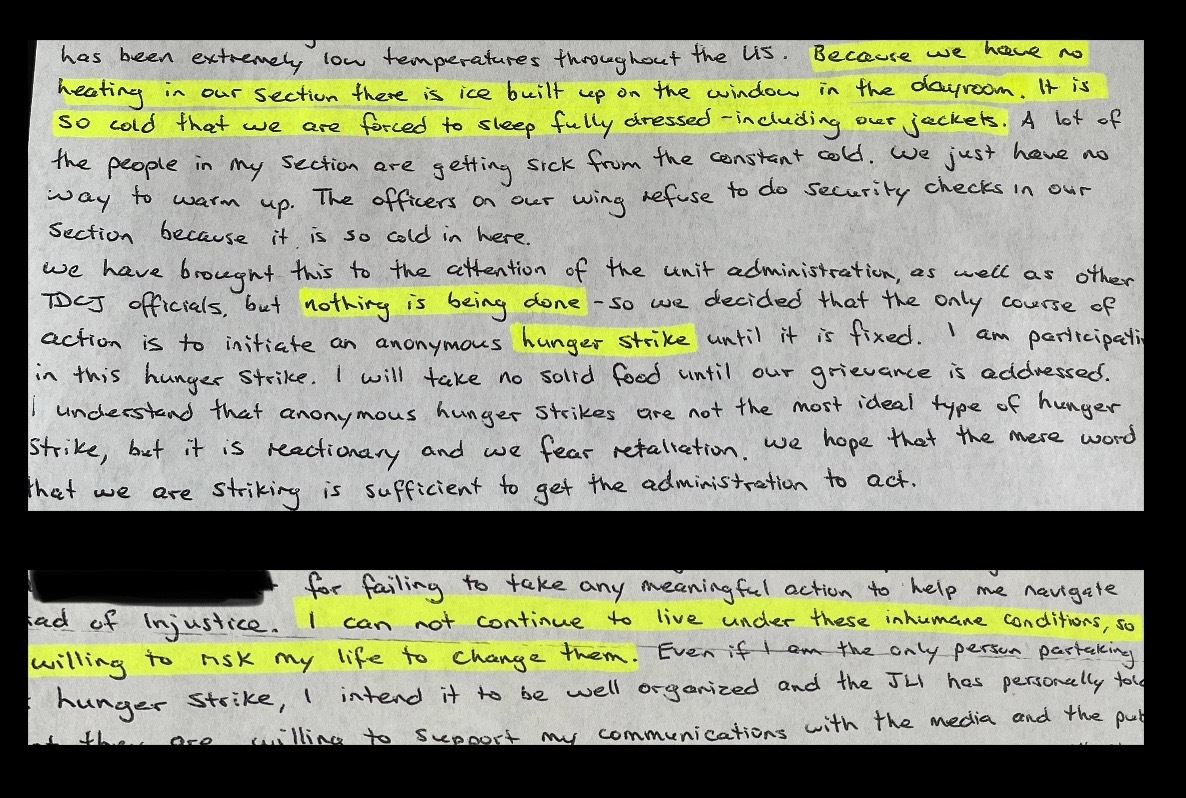 has been extremely low temperatures throughout the US. Because we have no
heating in our section there is ice built up on the window in the dayroom. It is
so cold that we are forced to sleep fully dressed - including our jackets. A lot of
the people in my section are getting sick from the constant cold. We just have no
way to warm up. The officers on our wing refuse to do security checks in our
section because it is so cold in here.
we have brought this to the attention of the unit administration, as well as other
TDCJ officials, but nothing is being done - so we decided that the only course of
action is to initiate an anonymous hunger strike until it is fixed. I am participatin
in this hunger strike. I will take no solid food until our grievance is addressed.
I understand that anonymous hunger strikes are not the most ideal type of hunger
strike, but it is reactionary and we fear retaliation. we hope that the mere word
that we are striking is sufficient to get the administration to act.
for failing to take any meaningful action to help me navigate
ad of Injustice. I can not continue to live under these inhumane conditions, so
willing to risk my life to change them. Even if I am the only person partaking
hunger strike, I intend it to be well organized and the JLI has personally told
they are willing to support my communications with the media and the pub